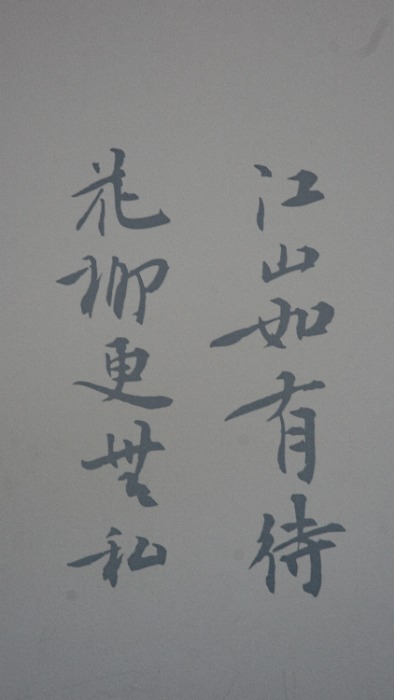 江山如有待
花柳更無私